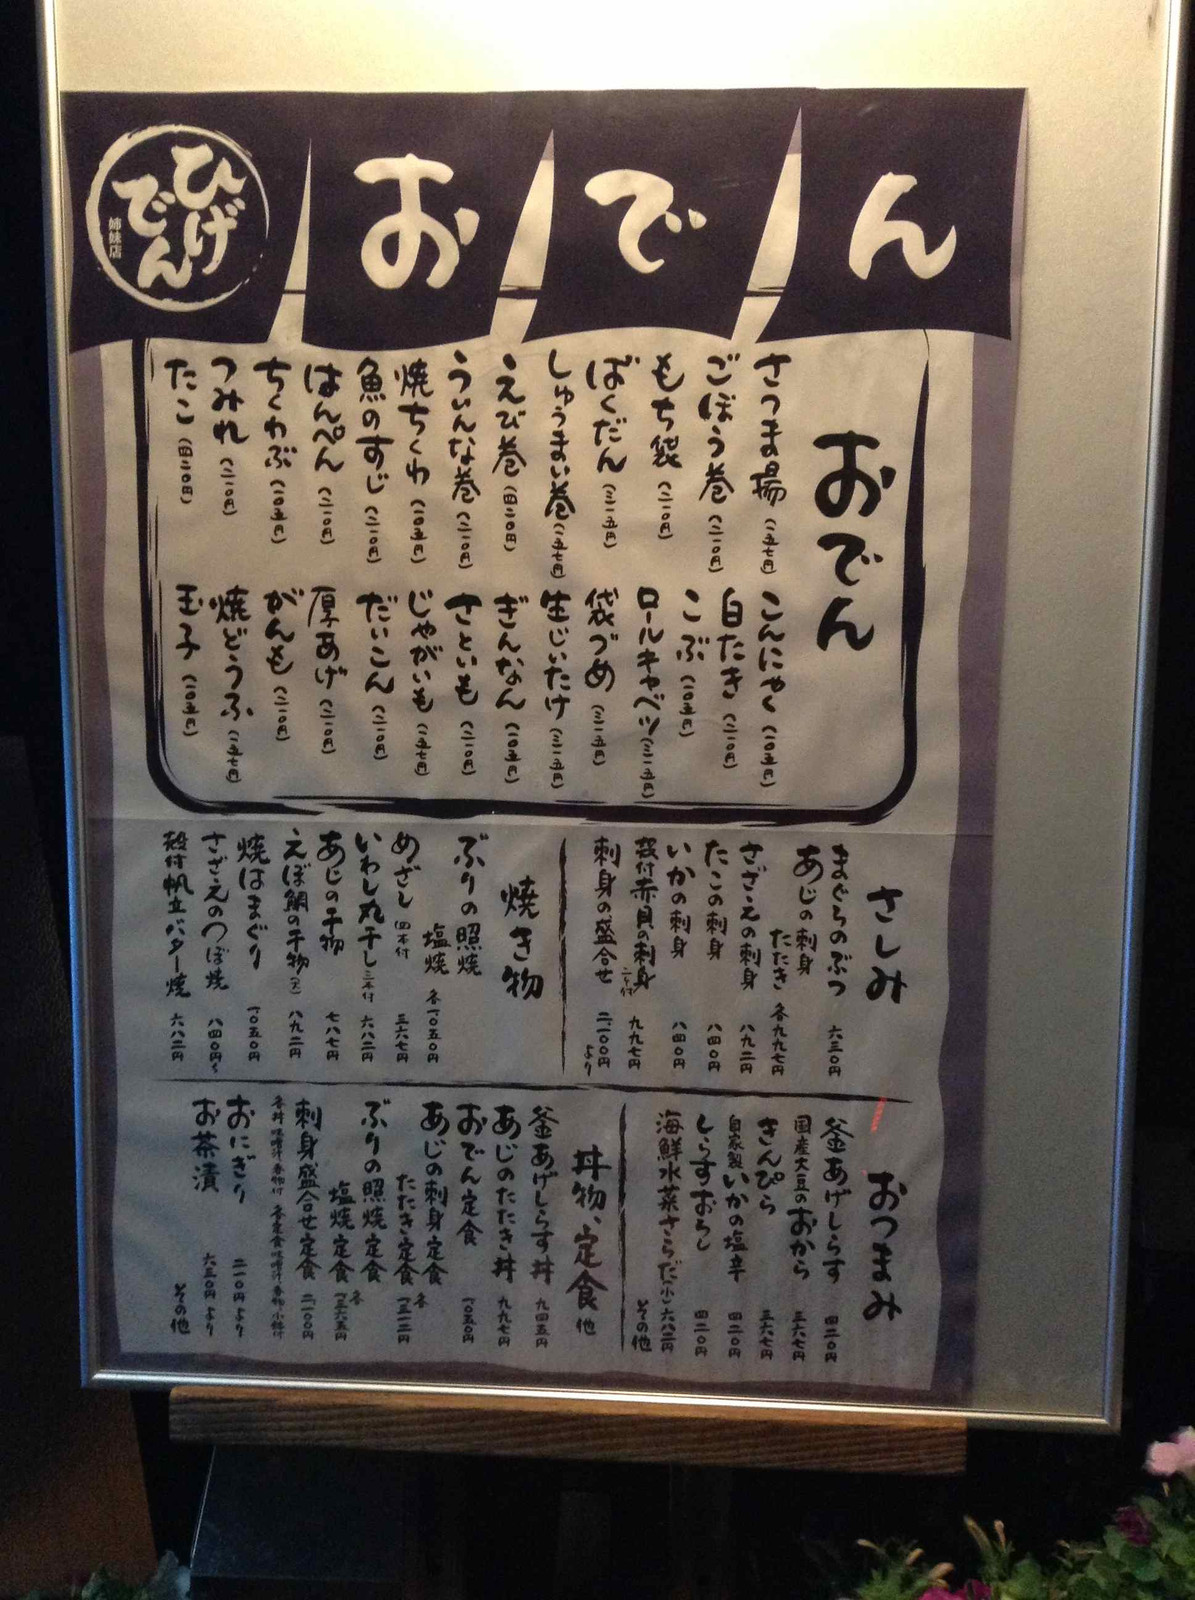 おでん
ひげでん
姉妹店
おでん
さつま揚(一五七円)
ごぼう巻(二一〇円)
もち袋(二一〇円)
ばくだん(三一五円)
しゅうまい巻(一五七円)
えび巻(四二〇円)
うぃんな巻(二一〇円)
焼ちくわ(一〇五円)
魚のすじ(二一〇円)
はんぺん(二一〇円)
ちくわぶ(一〇五円)
つみれ(二一〇円)
たこ(四二〇円)
こんにゃく(一〇五円)
白たき(二一〇円)
こぶ(一〇五円)
ロールキャベツ(三一五円)
袋づめ(三一五円)
生じいたけ(三一五円)
ぎんなん(一〇五円)
さといも(二一〇円)
じゃがいも(一五七円)
だいこん(二一〇円)
厚あげ(二一〇円)
がんも(二一〇円)
焼どうふ(一五七円)
玉子(一〇五円)
さしみ
まぐろのぶつ 六三〇円
あじの刺身
たたき 各九九七円
さざえの刺身 八九二円
たこの刺身 八四〇円
いかの刺身 八四〇円
殻付赤貝の刺身 二ケ付 九九七円
刺身の盛合せ 二、一〇〇円より
焼き物
ぶりの照焼
塩焼 各一、〇五〇円
めざし 四本付 三六七円
いわし丸干し 三本付 六八二円
あじの干物 七八七円
えぼ鯛の干物(大) 八九二円
焼はまぐり 一、〇五〇円
さざえのつぼ焼 八四〇円〜
殻付帆立バター焼 六八二円
おつまみ
釜あげしらす 四二〇円
国産大豆のおから 三六七円
きんぴら 三六七円
自家製いかの塩辛 四二〇円
しらすおろし 四二〇円
海鮮水菜さらだ(小) 六八二円
その他
丼物、定食 他
釜あげしらす丼 九四五円
あじのたたき丼 九九七円
おでん定食 一、〇五〇円
あじの刺身定食
たたき定食 各一、二一二円
ぶりの照焼定食
塩焼定食 各一、三六五円
刺身盛合せ定食 二、一〇〇円
各丼 味噌汁、香物付 各定食 味噌汁、香物、小鉢付
おにぎり 二一〇円より
お茶漬 六三〇円より
その他